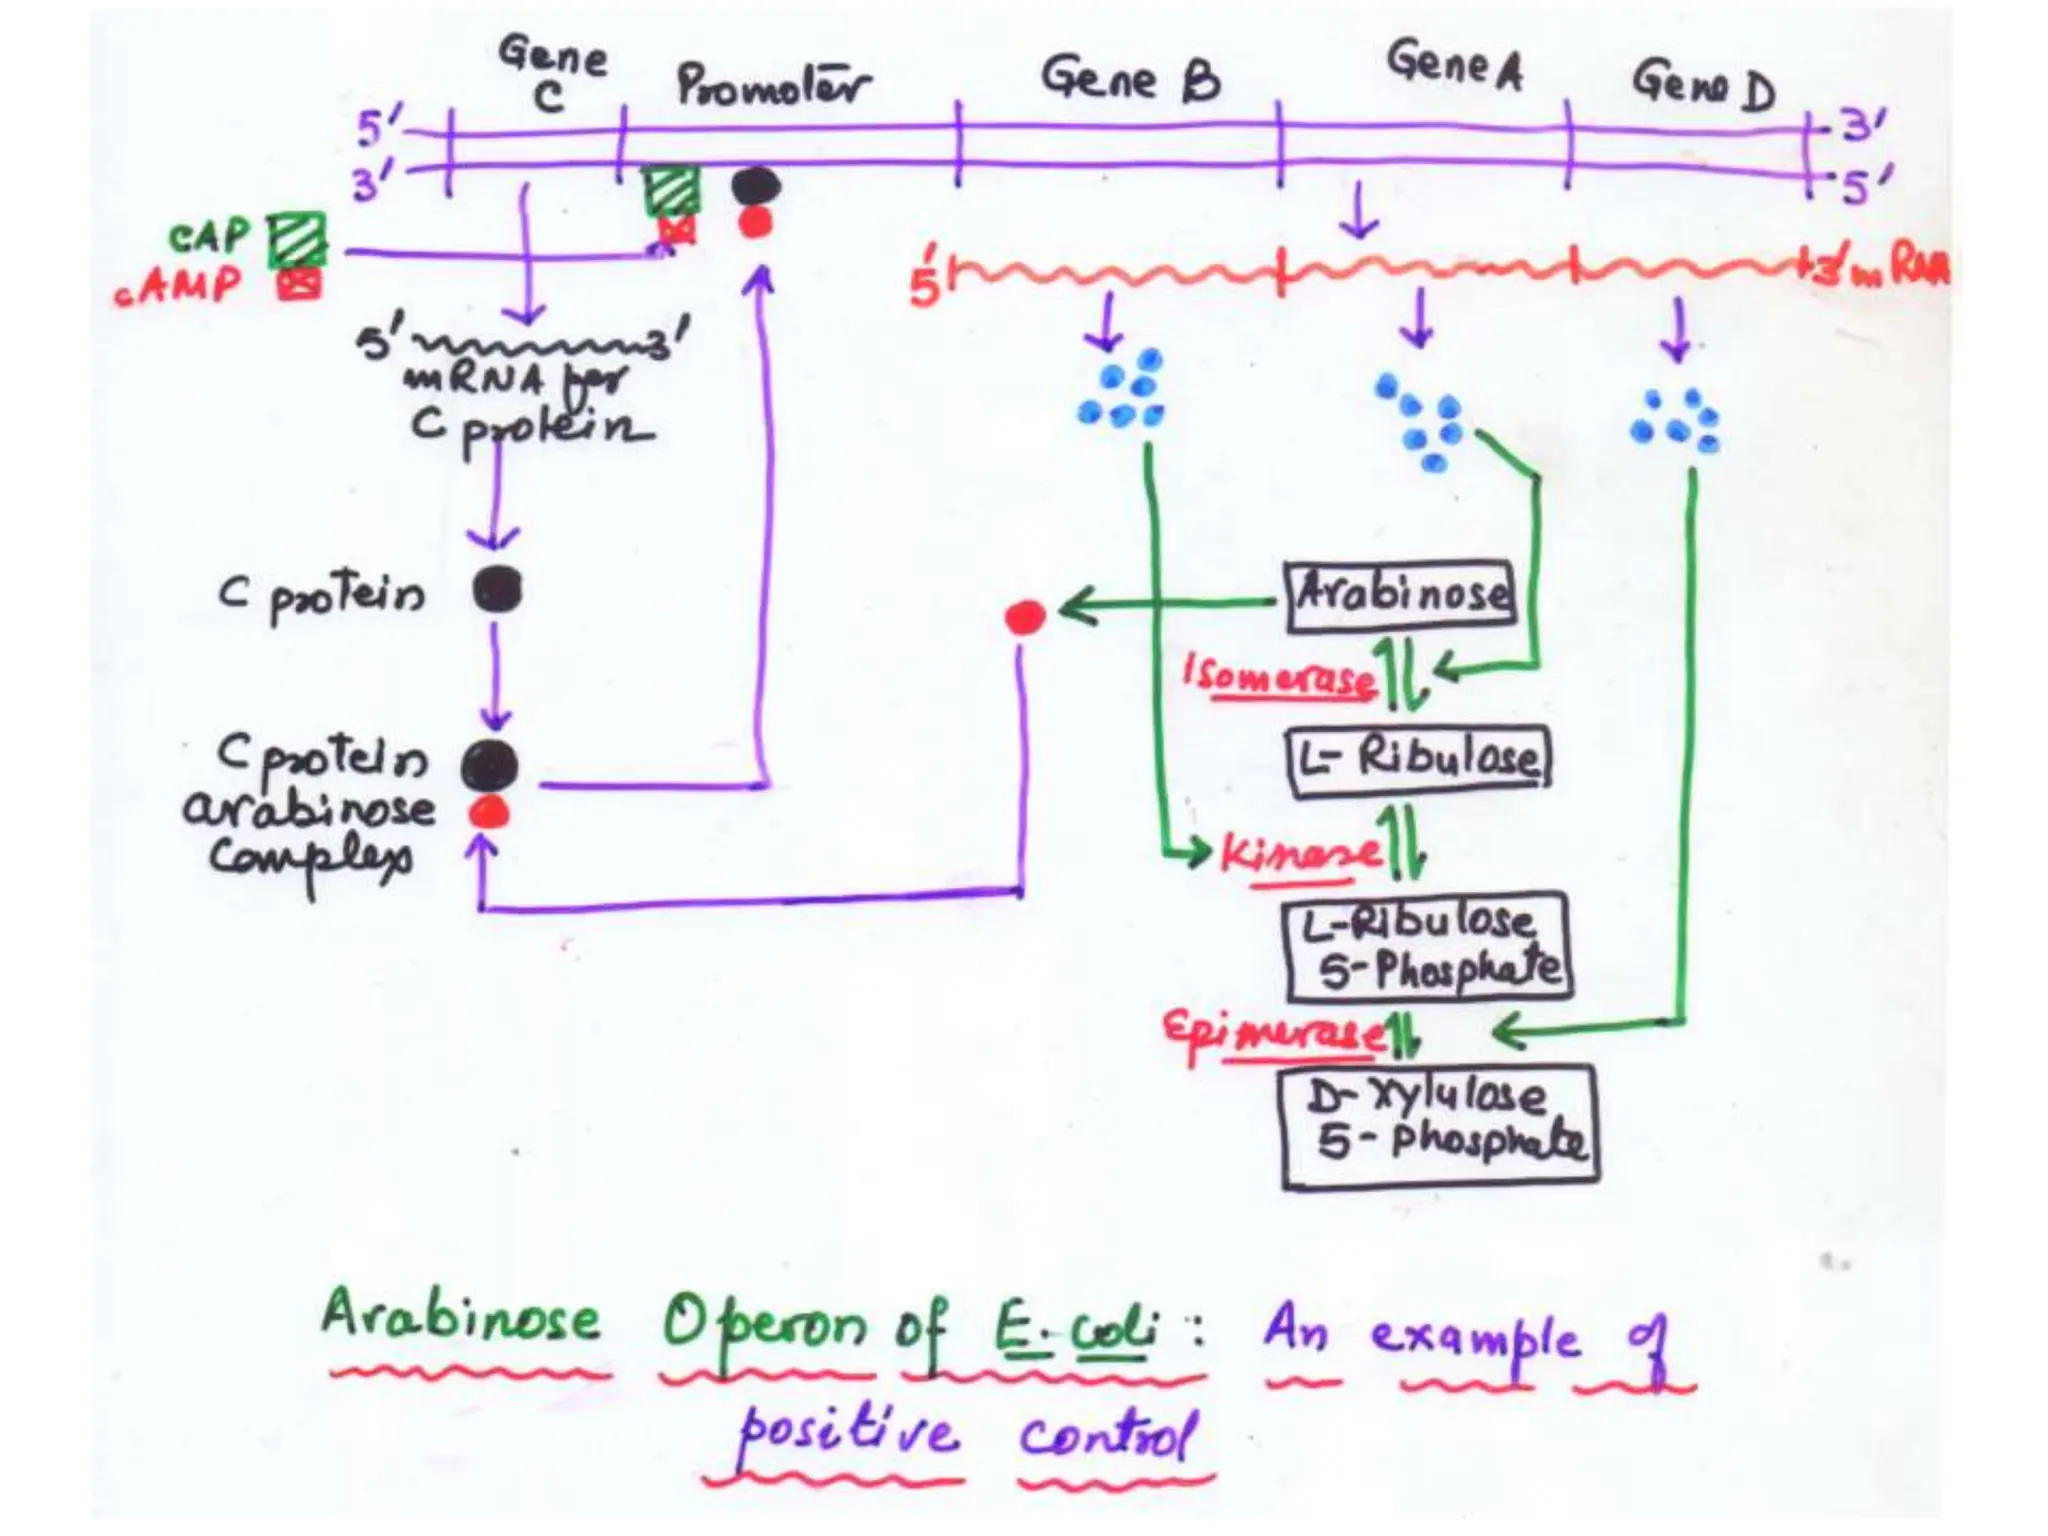 Gene
C
Promoter
Gene B
Gene A
Gene D
5' 3'
3' 5'
CAP
cAMP
5' 3' mRNA
5' 3'
mRNA for
C protein
C protein
Arabinose
Isomerase
L- Ribulose
C protein
arabinose
Complex
Kinase
L-Ribulose
5-Phosphate
Epimerase
D- Xylulose
5- phosphate
Arabinose Operon of E. coli : An example of
positive control